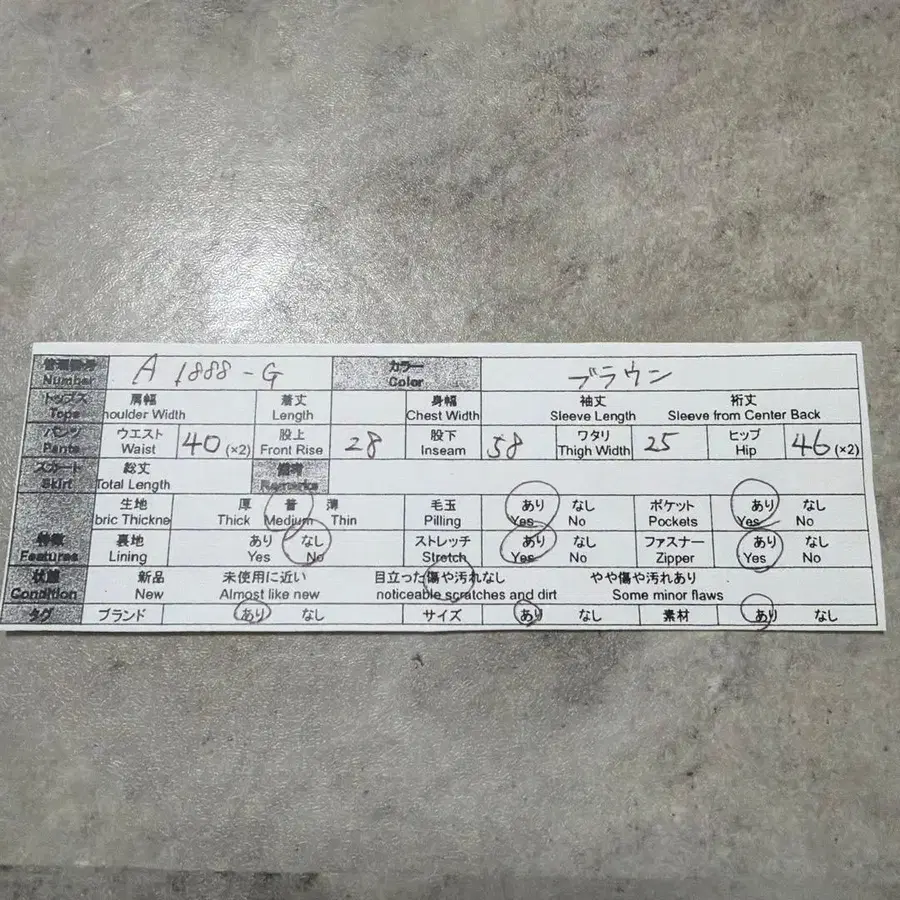 管理番号 A 1888-G カラー ブラウン
Number Color
トップス 肩幅 着丈 身幅 袖丈 裄丈
Tops houlder Width Length Chest Width Sleeve Length Sleeve from Center Back
パンツ ウエスト 40 (×2) 股上 28 股下 58 ワタリ 25 ヒップ 46 (×2)
Pants Waist Front Rise Inseam Thigh Width Hip
スカート 総丈 備考
Skirt Total Length Remarks
生地 厚 普 薄 毛玉 あり なし ポケット あり なし
bric Thickne Thick Medium Thin Pilling Yes No Pockets Yes No
特徴 裏地 あり なし ストレッチ あり なし ファスナー あり なし
Features Lining Yes No Stretch Yes No Zipper Yes No
状態 新品 未使用に近い 目立った傷や汚れなし やや傷や汚れあり
Condition New Almost like new noticeable scratches and dirt Some minor flaws
タグ ブランド あり なし サイズ あり なし 素材 あり なし